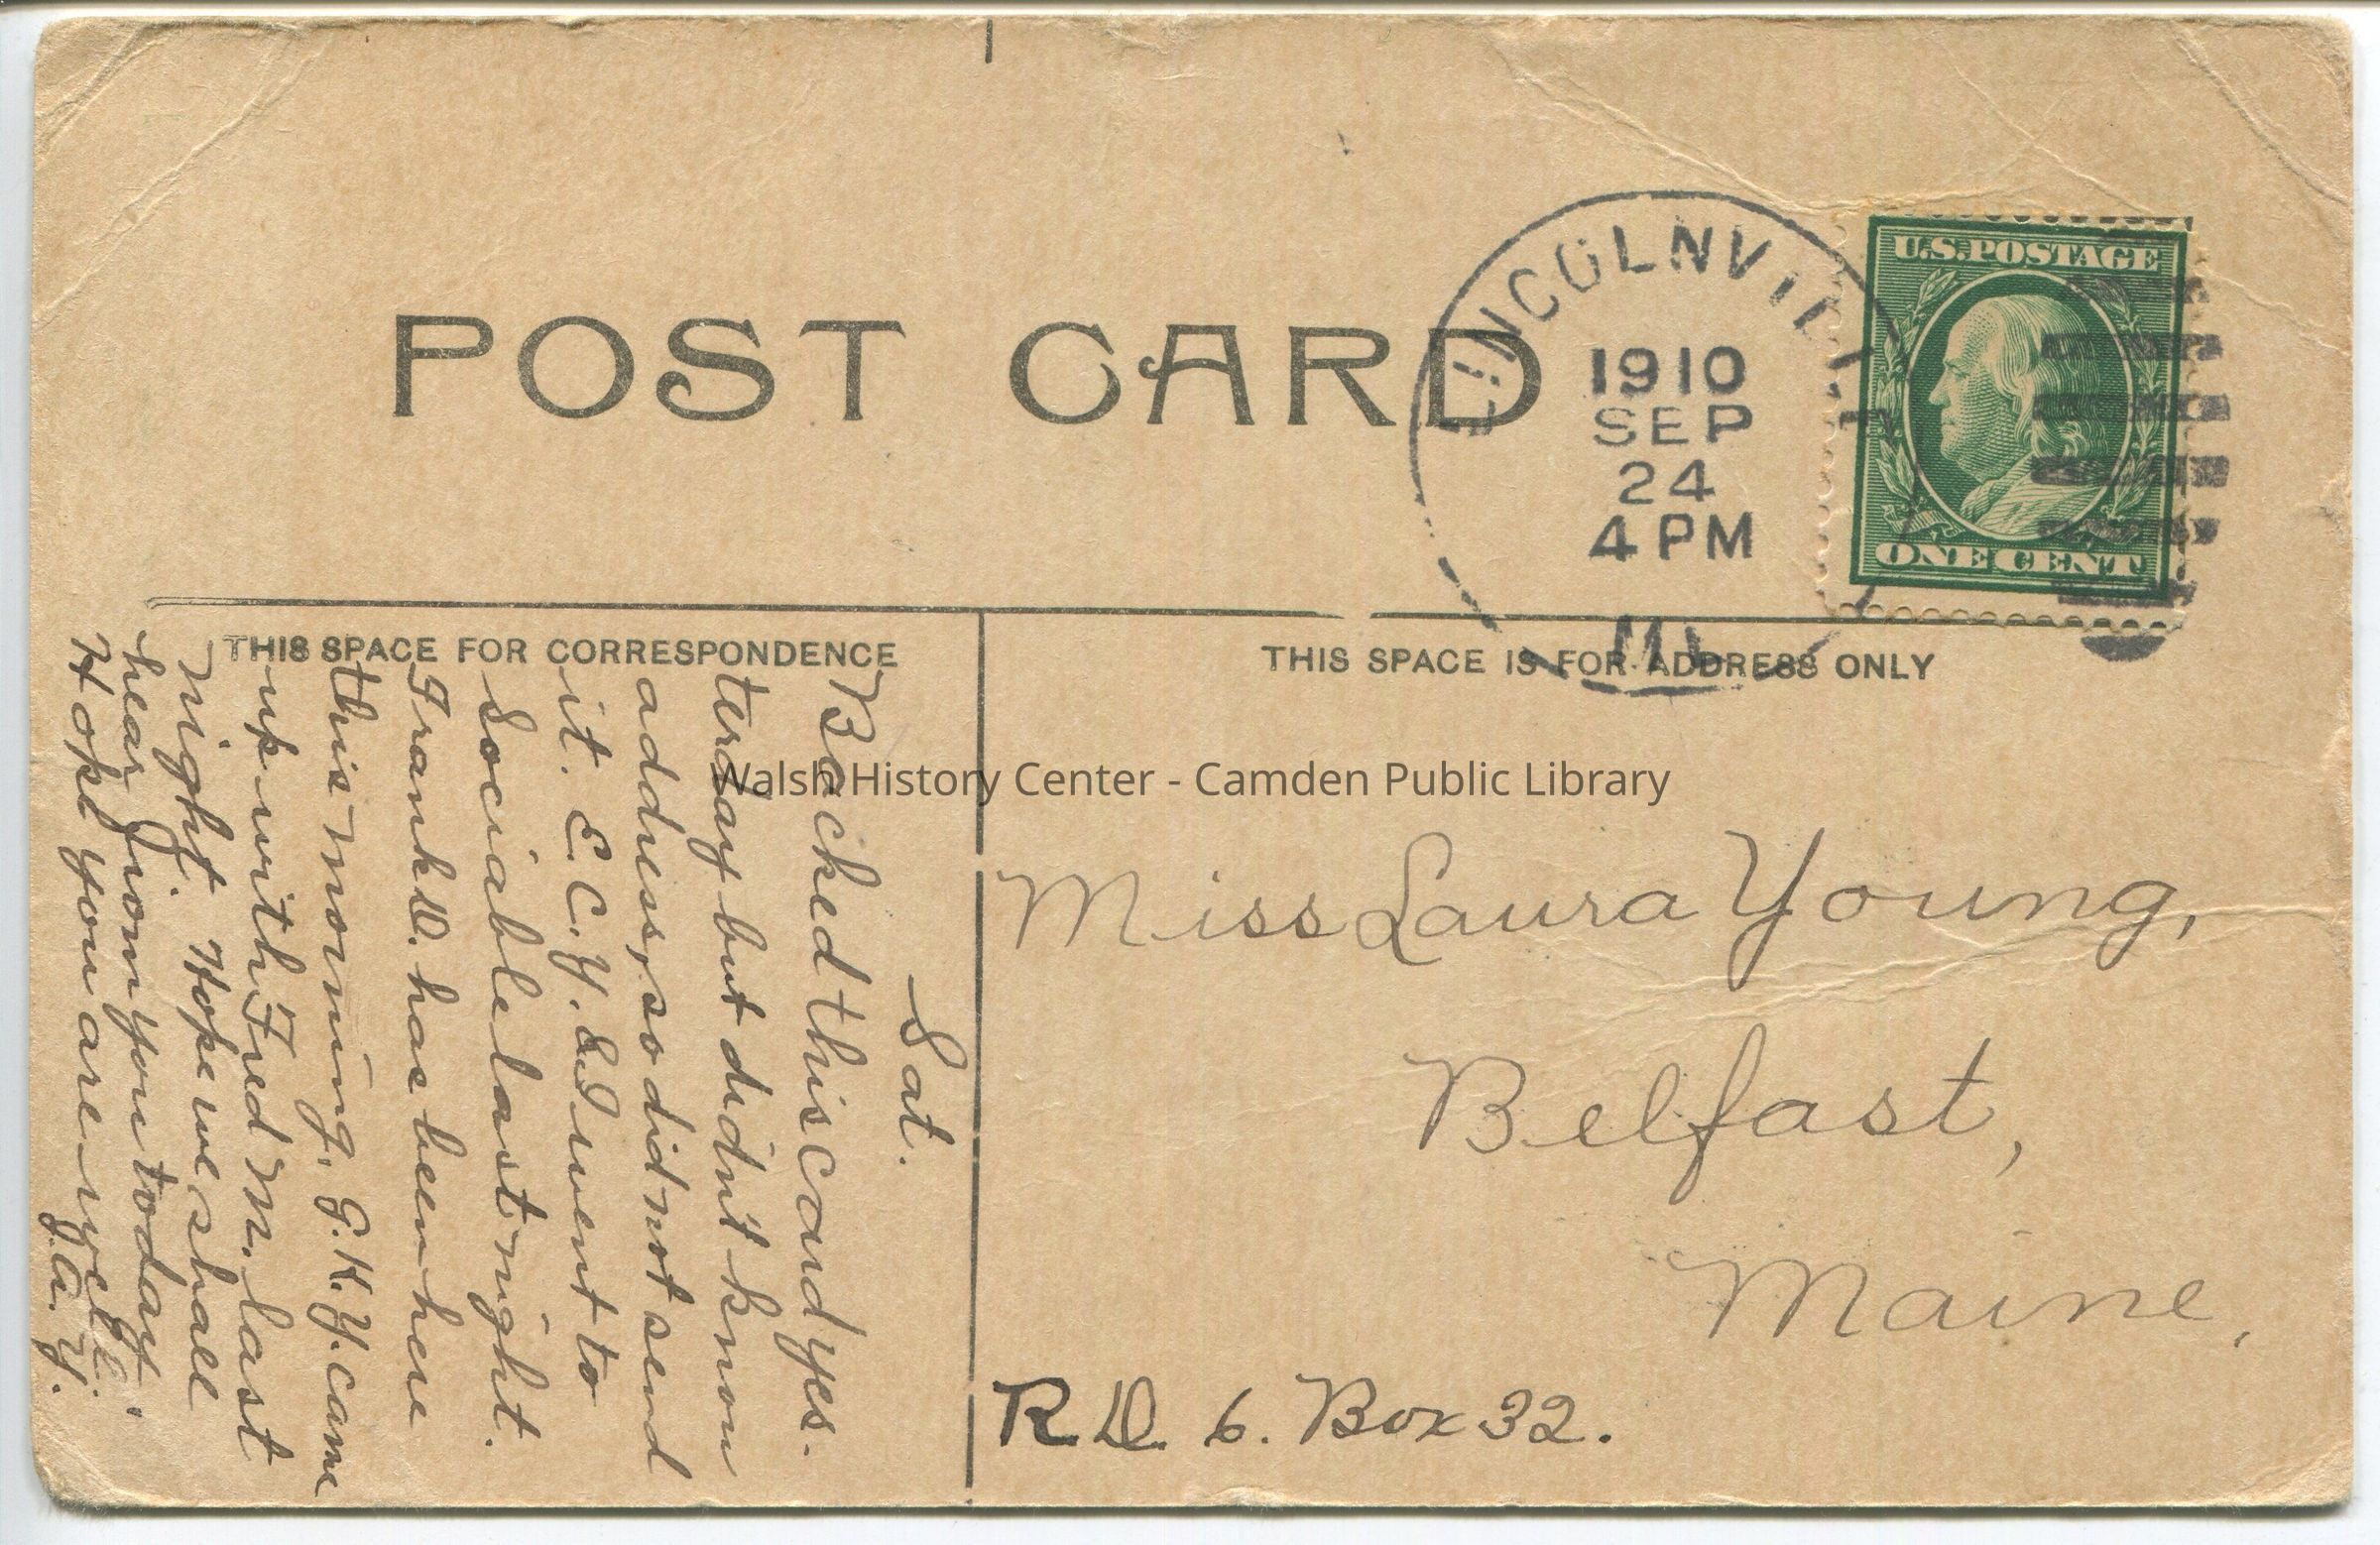 POST CARD
LINCOLNVILLE
1910
SEP
24
4 PM
ME.
U.S. POSTAGE
ONE CENT
THIS SPACE FOR CORRESPONDENCE
THIS SPACE IS FOR ADDRESS ONLY
Sat.
Backed this card yes-
terday but didn't know
address, so did not send
it. E.C.Y. & I went to
Sociable last night.
Frank D. has been here
this morning. G.K.Y. came
up with Fred M. last
night. Hope we shall
hear from you today.
Hope you are well.
J.A.Y.
Miss Laura Young,
Belfast,
Maine,
R.D. 6. Box 32.
Walsh History Center - Camden Public Library